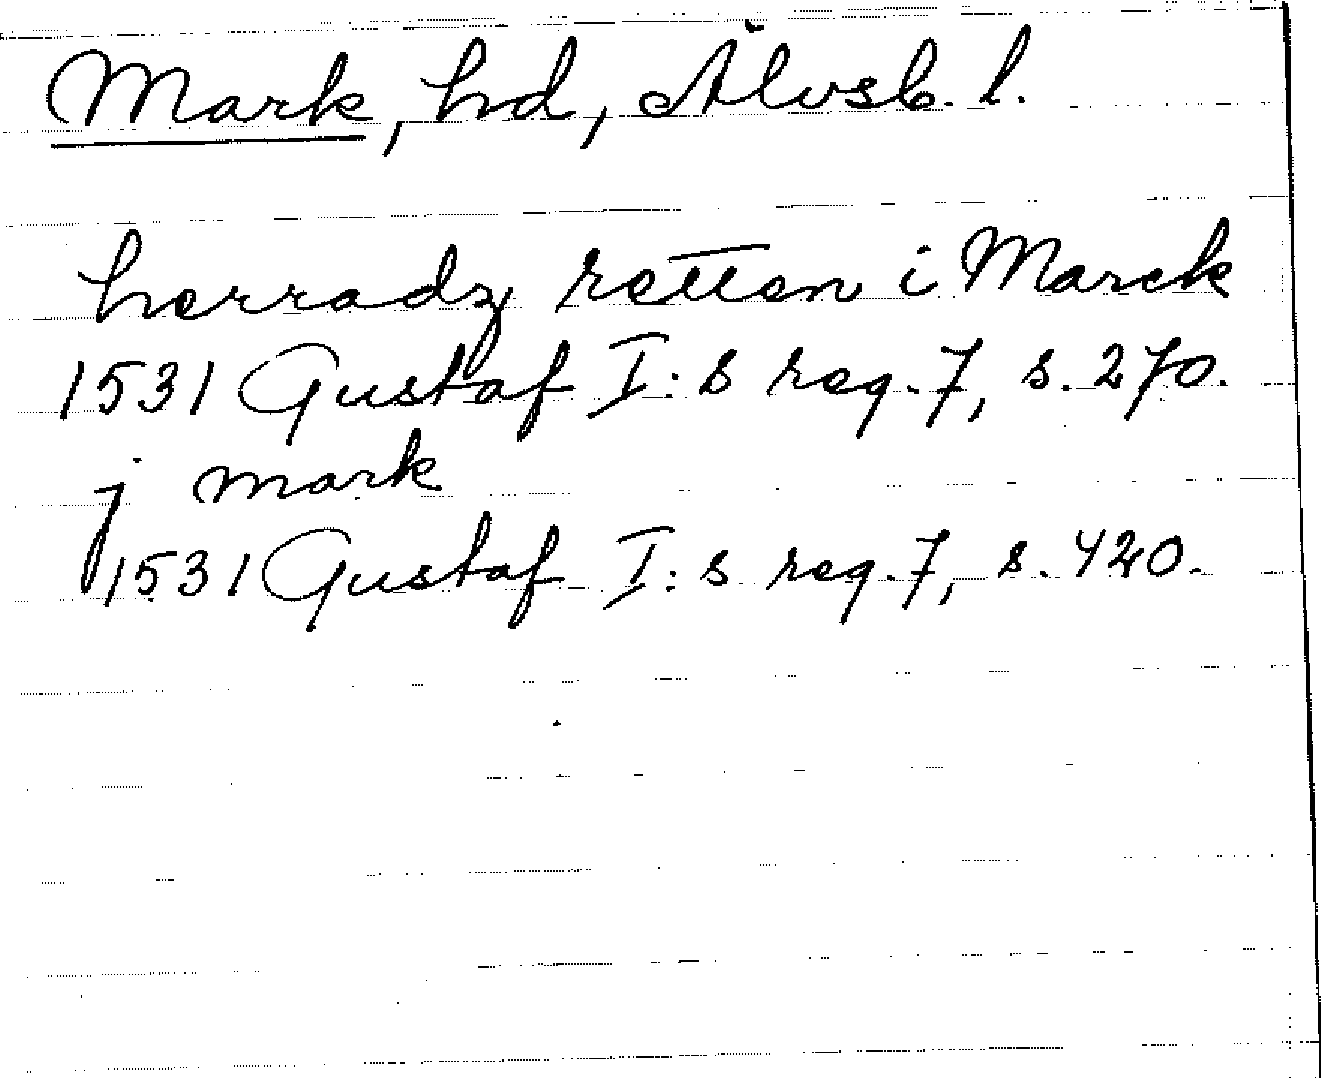 Mark, hd, Älvsb. l.
herradz retten i Marck
1531 Gustaf I:s reg. 7, s. 270.
j mark
1531 Gustaf I:s reg. 7, s. 420.